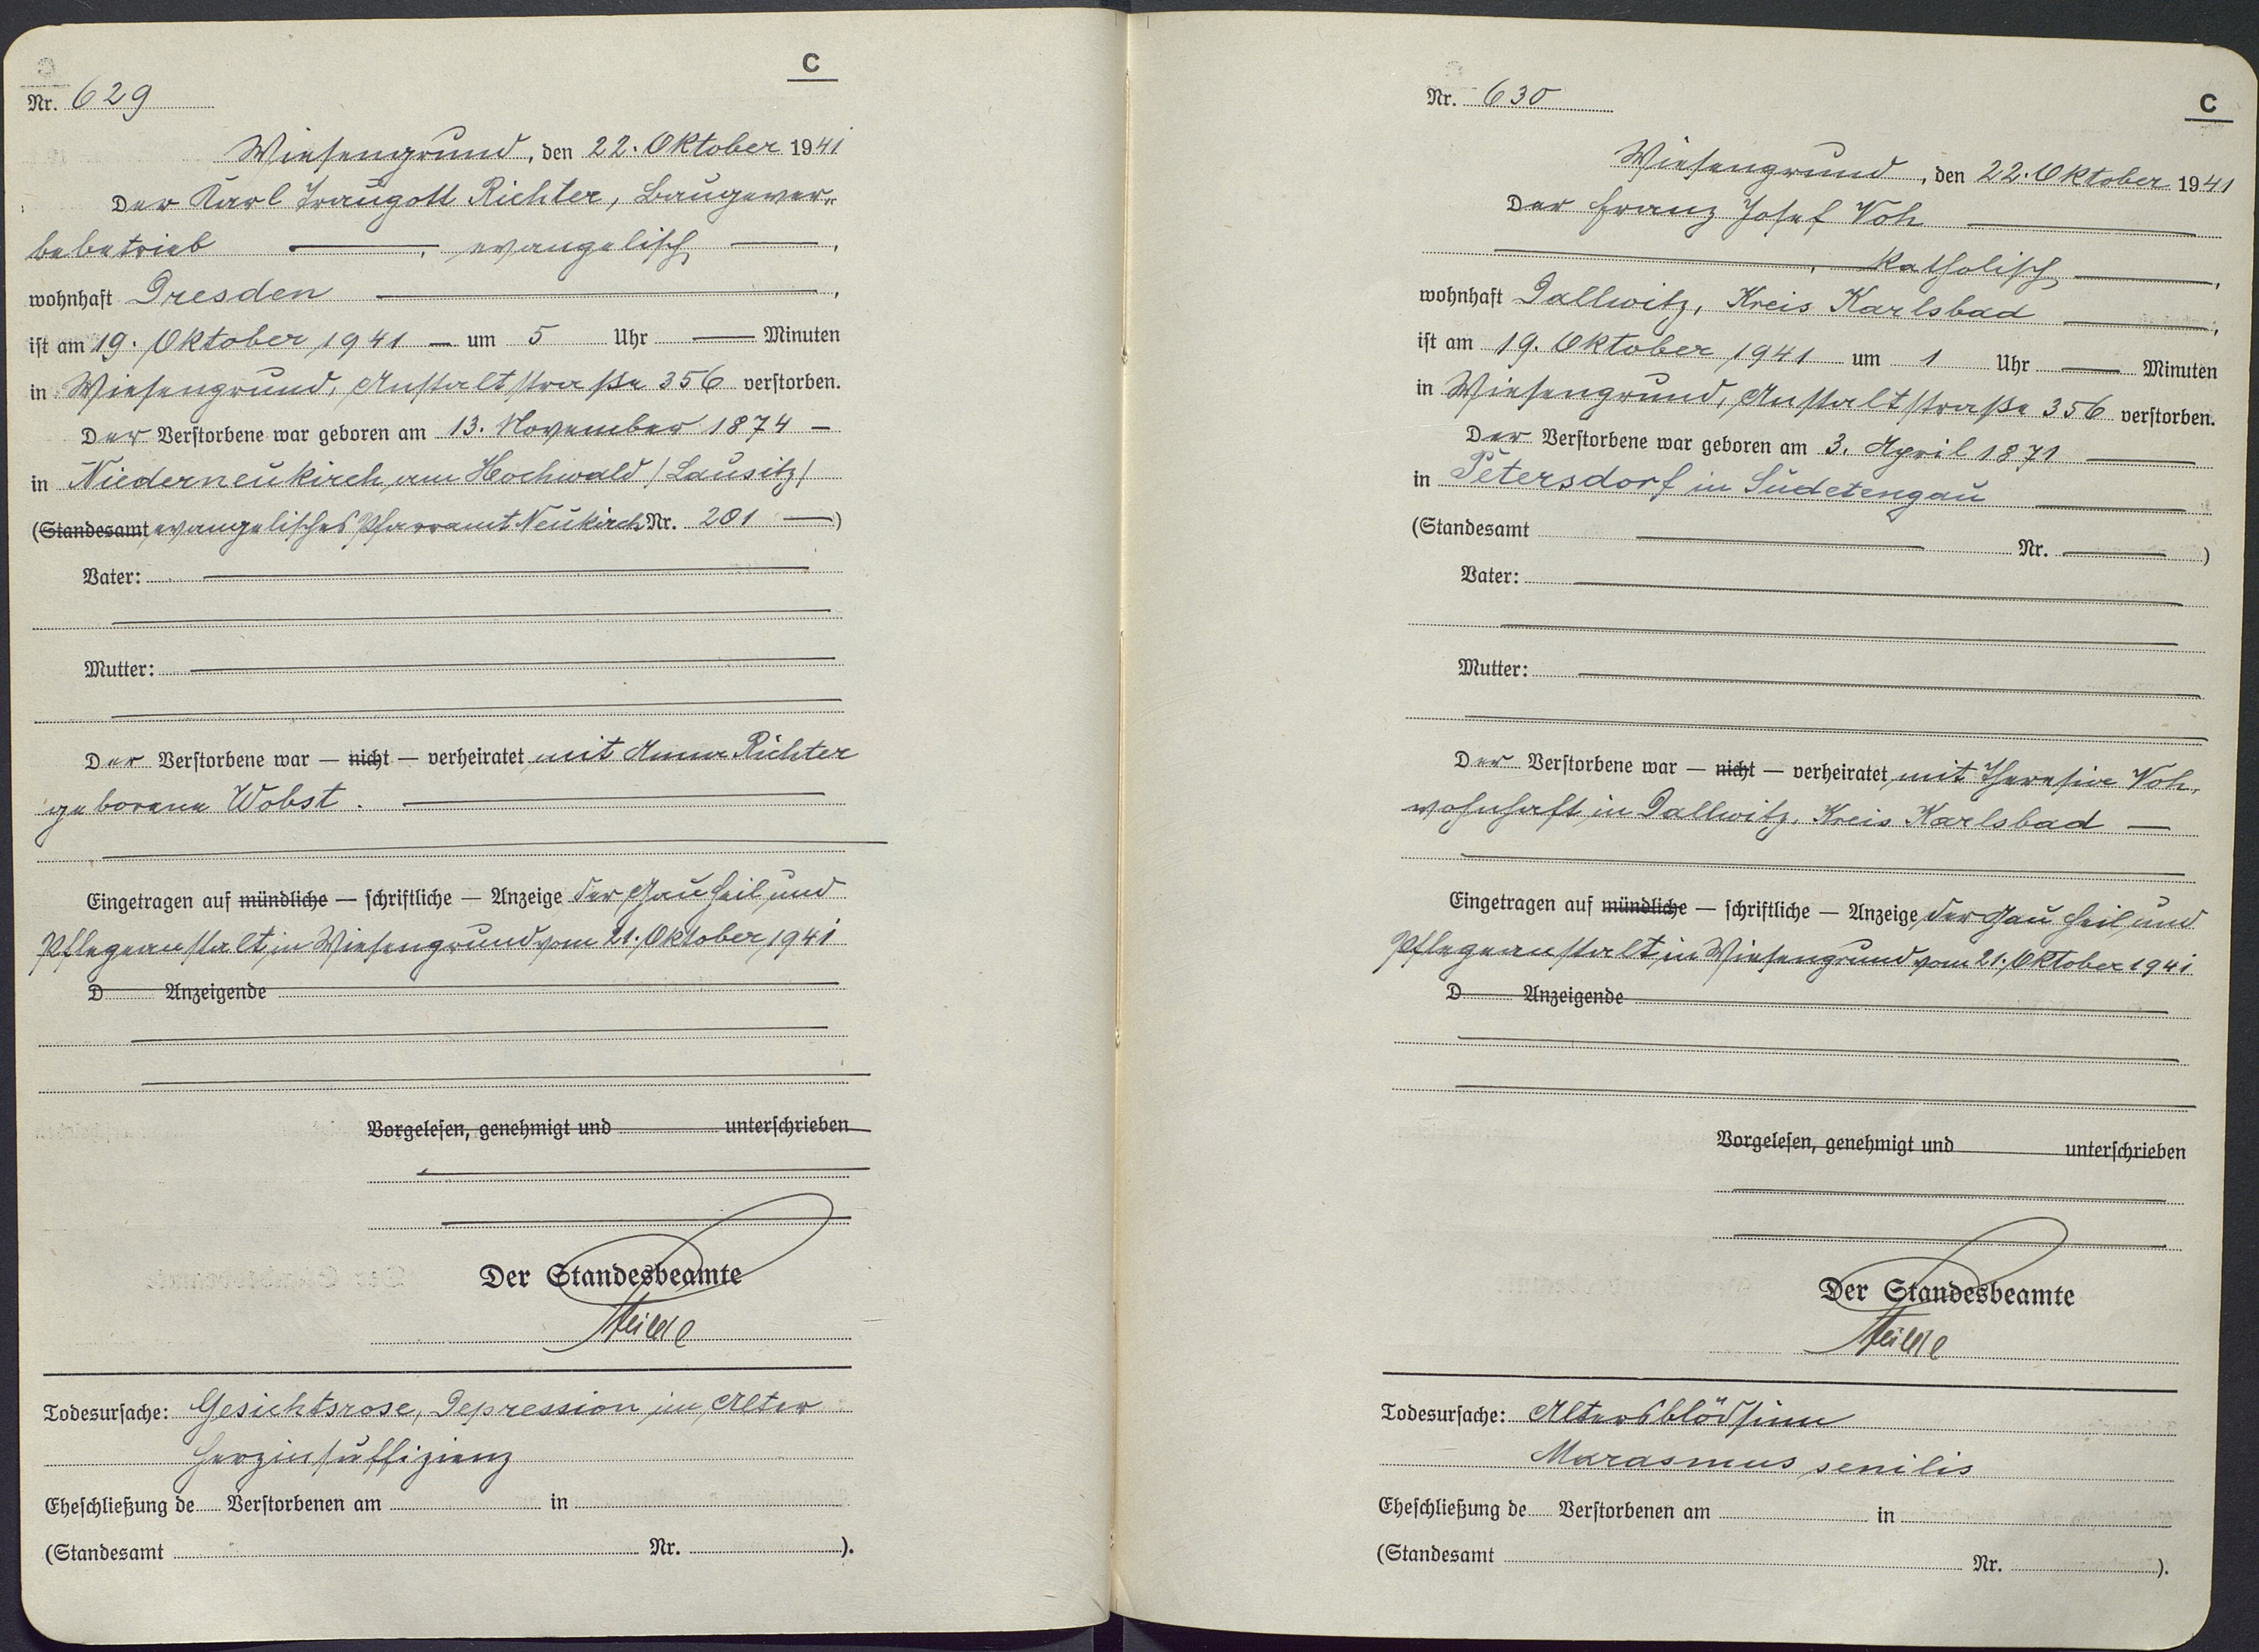 C
Nr. 629
Wiesengrund, den 22. Oktober 1941
Der Karl Traugott Richter, Baugewer-
bebetrieb —, evangelisch —,
wohnhaft Dresden —,
ist am 19. Oktober 1941 — um 5 Uhr — Minuten
in Wiesengrund, Anstaltstraße 356 verstorben.
Der Verstorbene war geboren am 13. November 1874 —
in Niederneukirch am Hochwald /Lausitz/
(Standesamt evangelisches Pfarramt Neukirch Nr. 201 —)
Vater: —
Mutter: —
Der Verstorbene war — nicht — verheiratet mit Anna Richter
geborene Wobst. —
Eingetragen auf mündliche — schriftliche — Anzeige der Gau Heil und
Pflegeanstalt in Wiesengrund vom 21. Oktober 1941
D Anzeigende
Vorgelesen, genehmigt und unterschrieben
Der Standesbeamte
Todesursache: Gesichtsrose, Depression im Alter
Herzinsuffizienz
Eheschließung de Verstorbenen am in
(Standesamt Nr. ).
C
Nr. 630
Wiesengrund, den 22. Oktober 1941
Der Franz Josef Voh —
—, katholisch —,
wohnhaft Dallwitz, Kreis Karlsbad —,
ist am 19. Oktober 1941 um 1 Uhr — Minuten
in Wiesengrund, Anstaltstraße 356 verstorben.
Der Verstorbene war geboren am 3. April 1871 —
in Petersdorf im Sudetengau —
(Standesamt — Nr. —)
Vater: —
Mutter: —
Der Verstorbene war — nicht — verheiratet mit Theresia Voh,
wohnhaft in Dallwitz, Kreis Karlsbad —
Eingetragen auf mündliche — schriftliche — Anzeige der Gau Heil und
Pflegeanstalt in Wiesengrund vom 21. Oktober 1941
D Anzeigende
Vorgelesen, genehmigt und unterschrieben
Der Standesbeamte
Todesursache: Altersblödsinn
Marasmus senilis
Eheschließung de Verstorbenen am in
(Standesamt Nr. ).